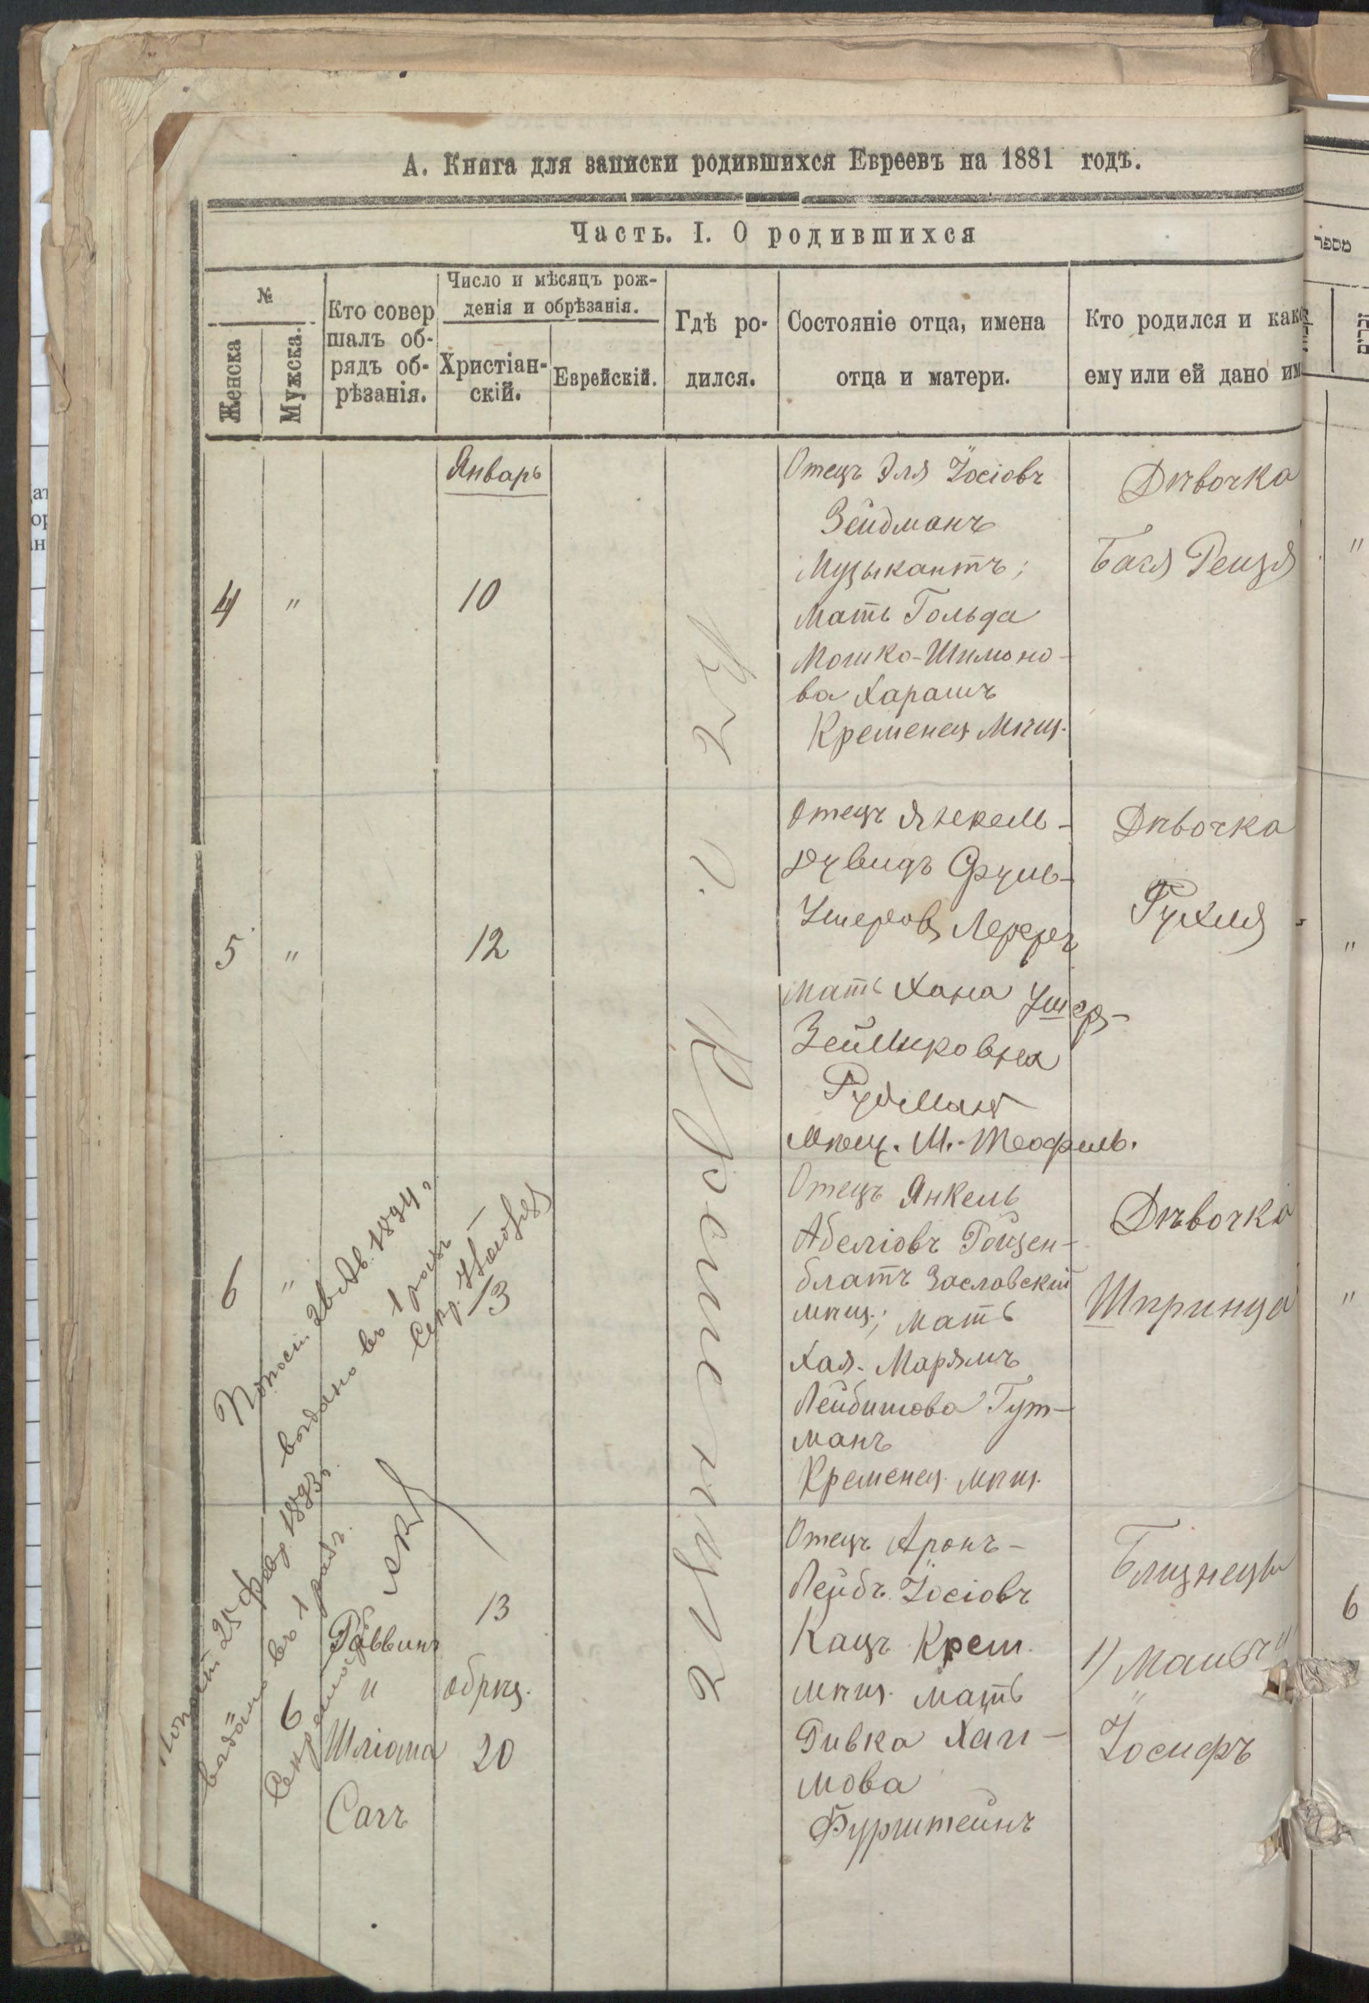 А. Книга для записки родившихся Евреевъ на 1881 годъ.
Часть. I. О родившихся
№
Женска
Мужска.
Кто совер
шалъ об-
рядъ об-
рѣзанія.
Число и мѣсяцъ рож-
денія и обрѣзанія.
Христіан-
скій.
Еврейскій.
Гдѣ ро-
дился.
Состояніе отца, имена
отца и матери.
Кто родился и како
ему или ей дано им
מספר
Январь
4
"
10
Отецъ Эля Іосіовъ
Зейдманъ
Музыкантъ;
Мать Гольда
Мошко-Шимоно-
ва Харашъ
Кременец Мѣщ.
Дѣвочка
Бася Рейзя
"
Въ г. Кременцѣ
5
"
12
Отецъ Янкель-
Дувидъ Фуль-
Ушеров Лерехъ
Мать Хана Ушер-
Зейликовна
Рудманъ
Мѣщ. М.-Теофиль.
Дѣвочка
Рухля
"
6
"
13
Отецъ Янкель
Абеліовъ Гойзен-
блатъ Заславскій
мѣщ.; мать
Хая-Марямъ
Лейбишова Гут-
манъ
Кременец. мѣщ.
Дѣвочка
Шпринца
"
выдано въ 1 разъ
6
Раввинъ
"
Шліома
Сагъ
13
обрѣз.
20
Отецъ Аронъ-
Лейбъ Іосіовъ
Кацъ Крем.
мѣщ. мать
Ривка Хаи-
мова
Бурштейнъ
Близнецы
1) Мальч"
"
Іосифъ
6